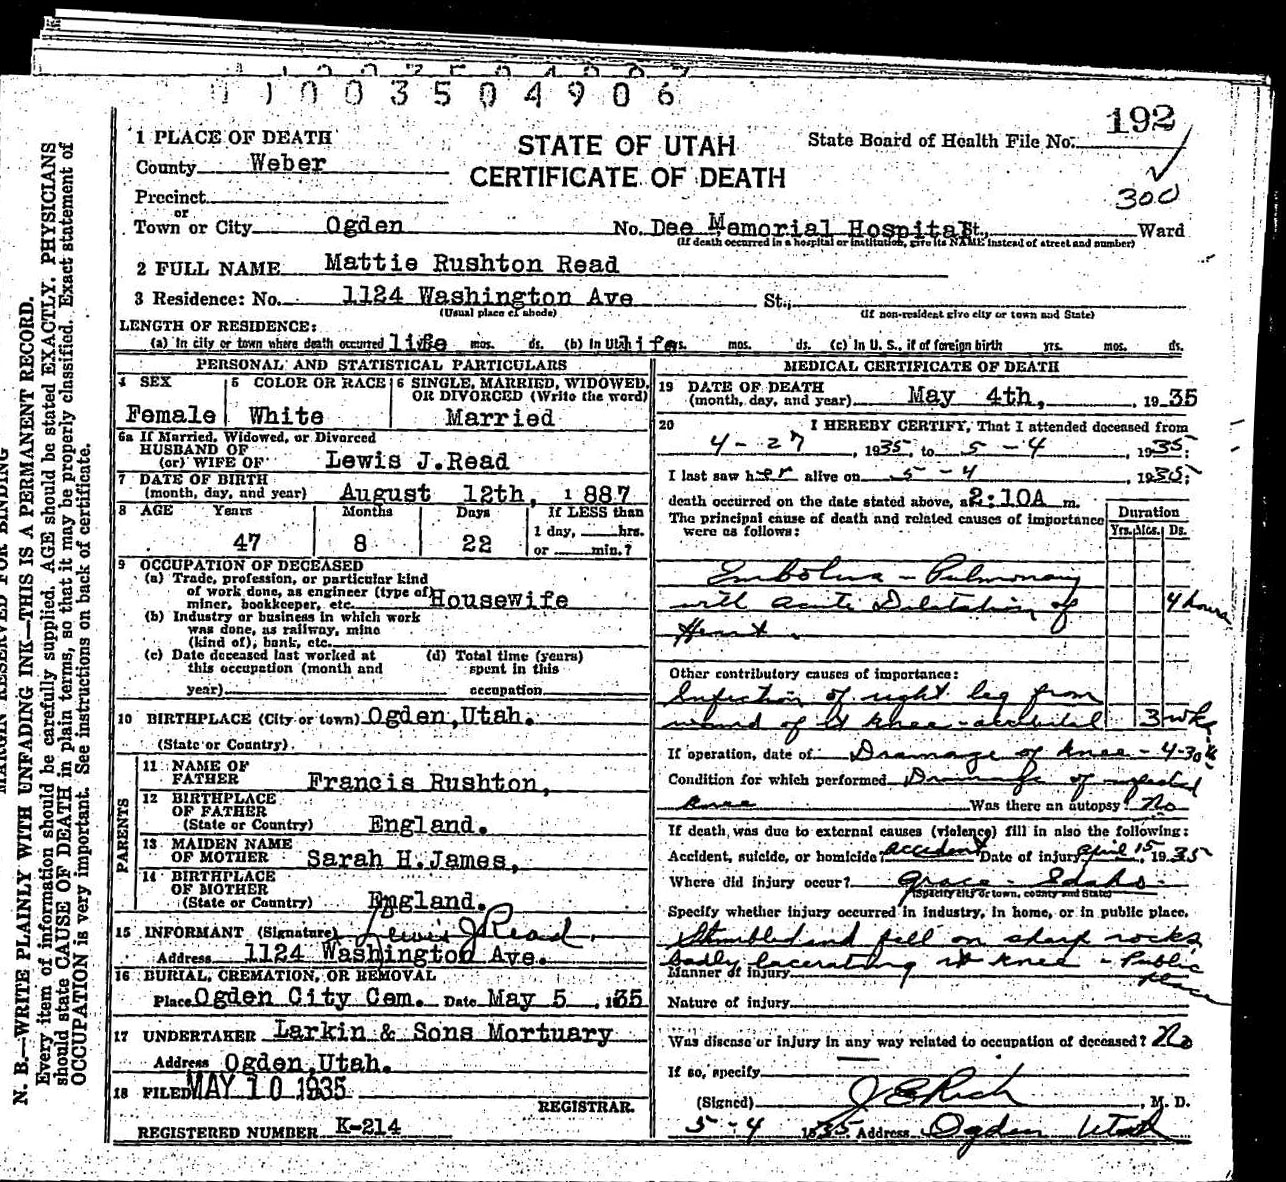 1 1 0 0 3 5 0 4 9 0 6
192
300
STATE OF UTAH
CERTIFICATE OF DEATH
State Board of Health File No.
1 PLACE OF DEATH
County Weber
Precinct
or
Town or City Ogden No. Dee Memorial Hospital St., Ward
(If death occurred in a hospital or institution, give its NAME instead of street and number)
2 FULL NAME Mattie Rushton Read
3 Residence: No. 1124 Washington Ave St.,
(Usual place of abode) (If non-resident give city or town and State)
LENGTH OF RESIDENCE:
(a) In city or town where death occurred life mos. ds. (b) In Utah life yrs. mos. ds. (c) In U. S., if of foreign birth yrs. mos. ds.
PERSONAL AND STATISTICAL PARTICULARS
4 SEX Female
5 COLOR OR RACE White
6 SINGLE, MARRIED, WIDOWED, OR DIVORCED (Write the word) Married
6a If Married, Widowed, or Divorced
HUSBAND OF
(or) WIFE OF Lewis J.Read
7 DATE OF BIRTH
(month, day, and year) August 12th, 1887
8 AGE Years Months Days If LESS than
1 day, hrs.
47 8 22 or min.?
9 OCCUPATION OF DECEASED
(a) Trade, profession, or particular kind
of work done, as engineer (type of)
miner, bookkeeper, etc. Housewife
(b) Industry or business in which work
was done, as railway, mine
(kind of), bank, etc.
(c) Date deceased last worked at (d) Total time (years)
this occupation (month and spent in this
year) occupation
10 BIRTHPLACE (City or town) Ogden,Utah.
(State or Country)
PARENTS
11 NAME OF
FATHER Francis Rushton,
12 BIRTHPLACE
OF FATHER
(State or Country) England.
13 MAIDEN NAME
OF MOTHER Sarah H.James,
14 BIRTHPLACE
OF MOTHER
(State or Country) England.
15 INFORMANT (Signature) Lewis J Read.
Address 1124 Washington Ave.
16 BURIAL, CREMATION, OR REMOVAL
Place Ogden City Cem. Date May 5 , 1935
17 UNDERTAKER Larkin & Sons Mortuary
Address Ogden,Utah.
18 FILED MAY 10 1935
REGISTRAR.
REGISTERED NUMBER K-214
MEDICAL CERTIFICATE OF DEATH
19 DATE OF DEATH
(month, day, and year) May 4th, , 1935
20 I HEREBY CERTIFY, That I attended deceased from
4-27 , 1935, to 5-4 , 1935;
I last saw her alive on 5-4 , 1935;
death occurred on the date stated above, at 2:10A m.
The principal cause of death and related causes of importance
were as follows:
Duration
Yrs. Mos. Ds.
Embolus - Pulmonary
with acute Dilatation of 4 hours
Heart.
Other contributory causes of importance:
Infection of right leg from
wound of rt knee - accidental 3 wks
If operation, date of Drainage of knee - 4-30
Condition for which performed Drainage of infected
knee Was there an autopsy? No
If death was due to external causes (violence) fill in also the following:
Accident, suicide, or homicide? accident Date of injury April 15, 1935
Where did injury occur? Grace - Idaho -
(Specify city or town, county and State)
Specify whether injury occurred in industry, in home, or in public place.
Stumbled and fell on sharp rocks
badly lacerating rt knee - Public
place
Manner of injury
Nature of injury
Was disease or injury in any way related to occupation of deceased? No
If so, specify
(Signed) J E Rich , M. D.
5-4 1935 Address Ogden Utah
MARGIN RESERVED FOR BINDING
N. B.—WRITE PLAINLY WITH UNFADING INK—THIS IS A PERMANENT RECORD.
Every item of information should be carefully supplied. AGE should be stated EXACTLY. PHYSICIANS
should state CAUSE OF DEATH in plain terms, so that it may be properly classified. Exact statement of
OCCUPATION is very important. See instructions on back of certificate.